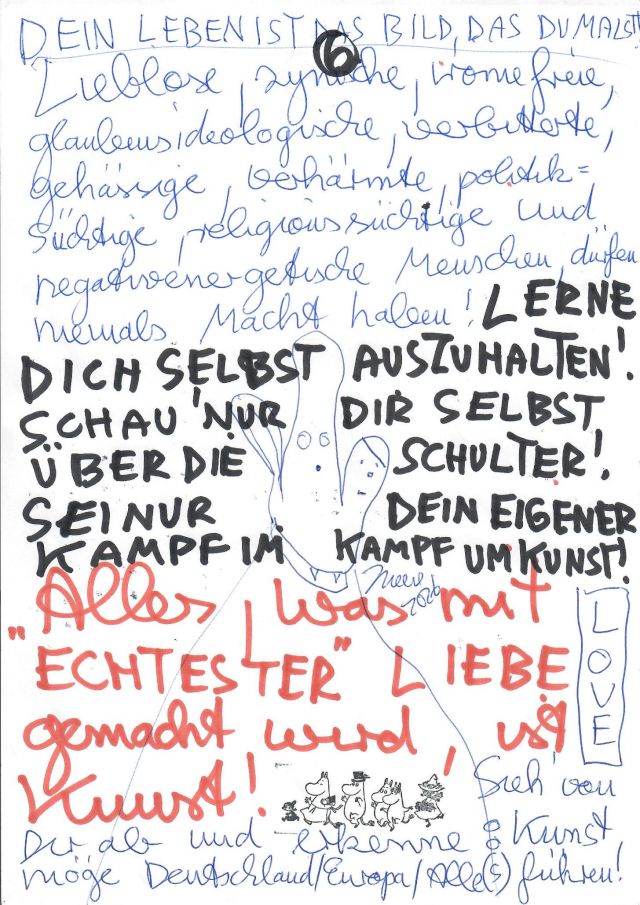 DEIN LEBEN IST DAS BILD, DAS DU MALST!
6
Lieblose, zynische, ironiefreie,
glaubensideologische, verbitterte,
gehässige, verhärmte, politik=
süchtige, religionssüchtige und
negativenergetische Menschen dürfen
niemals Macht haben! LERNE
DICH SELBST AUSZUHALTEN!
SCHAU NUR DIR SELBST
ÜBER DIE SCHULTER!
SEI NUR DEIN EIGENER
KAMPF IM KAMPF UM KUNST!
Meese
2026
Alles, was mit
"ECHTESTER" LIEBE
gemacht wird, ist
Kunst!
LOVE
Sieh' von
Dir ab und erkenne: Kunst
möge Deutschland/Europa/Alle(s) führen!